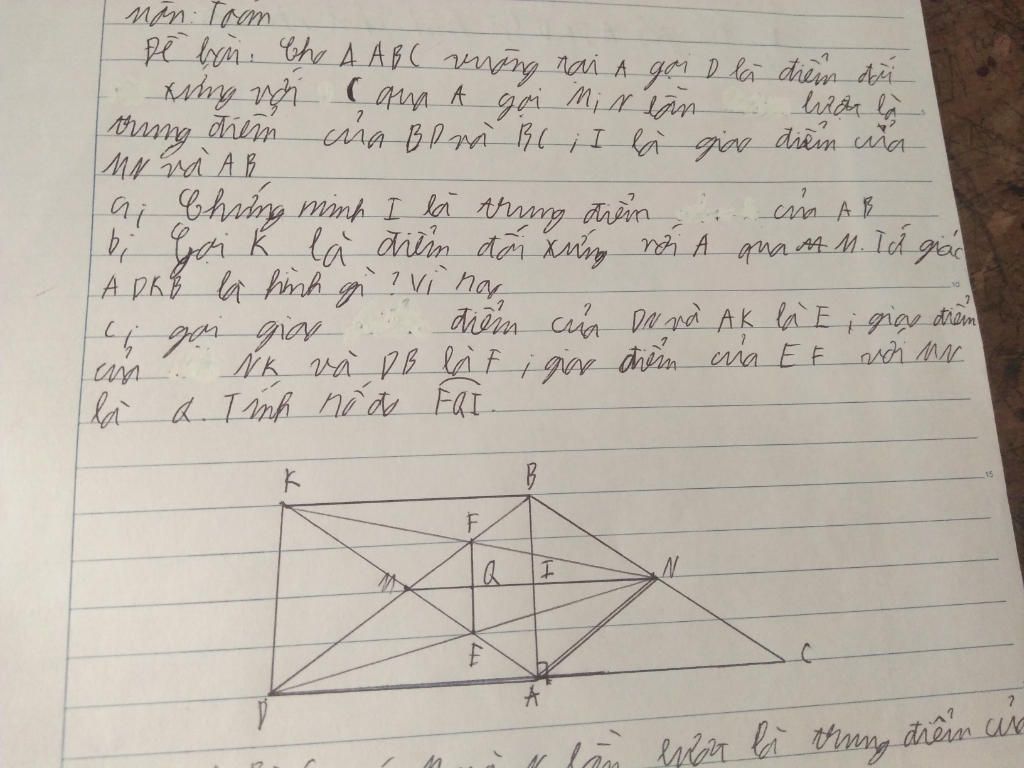 Môn: Toán
Đề bài. Cho Δ ABC vuông tại A gọi D là điểm đối
xứng với C qua A gọi M; N lần lượt là
trung điểm của BD và BC ; I là giao điểm của
MN và AB
a; Chứng minh I là trung điểm của AB
b; Gọi K là điểm đối xứng với A qua M. Tứ giác
ADKB là hình gì ? Vì sao
c; gọi giao điểm của DN và AK là E ; giao điểm
của NK và DB là F ; giao điểm của EF với MN
là Q. Tính số đo FQI.
K B
F
M Q I N
E
C
D A
N lần lượt là trung điểm của